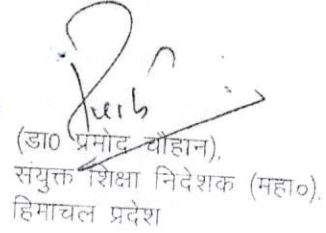 (डा० प्रमोद चौहान),
संयुक्त शिक्षा निदेशक (महा०),
हिमाचल प्रदेश